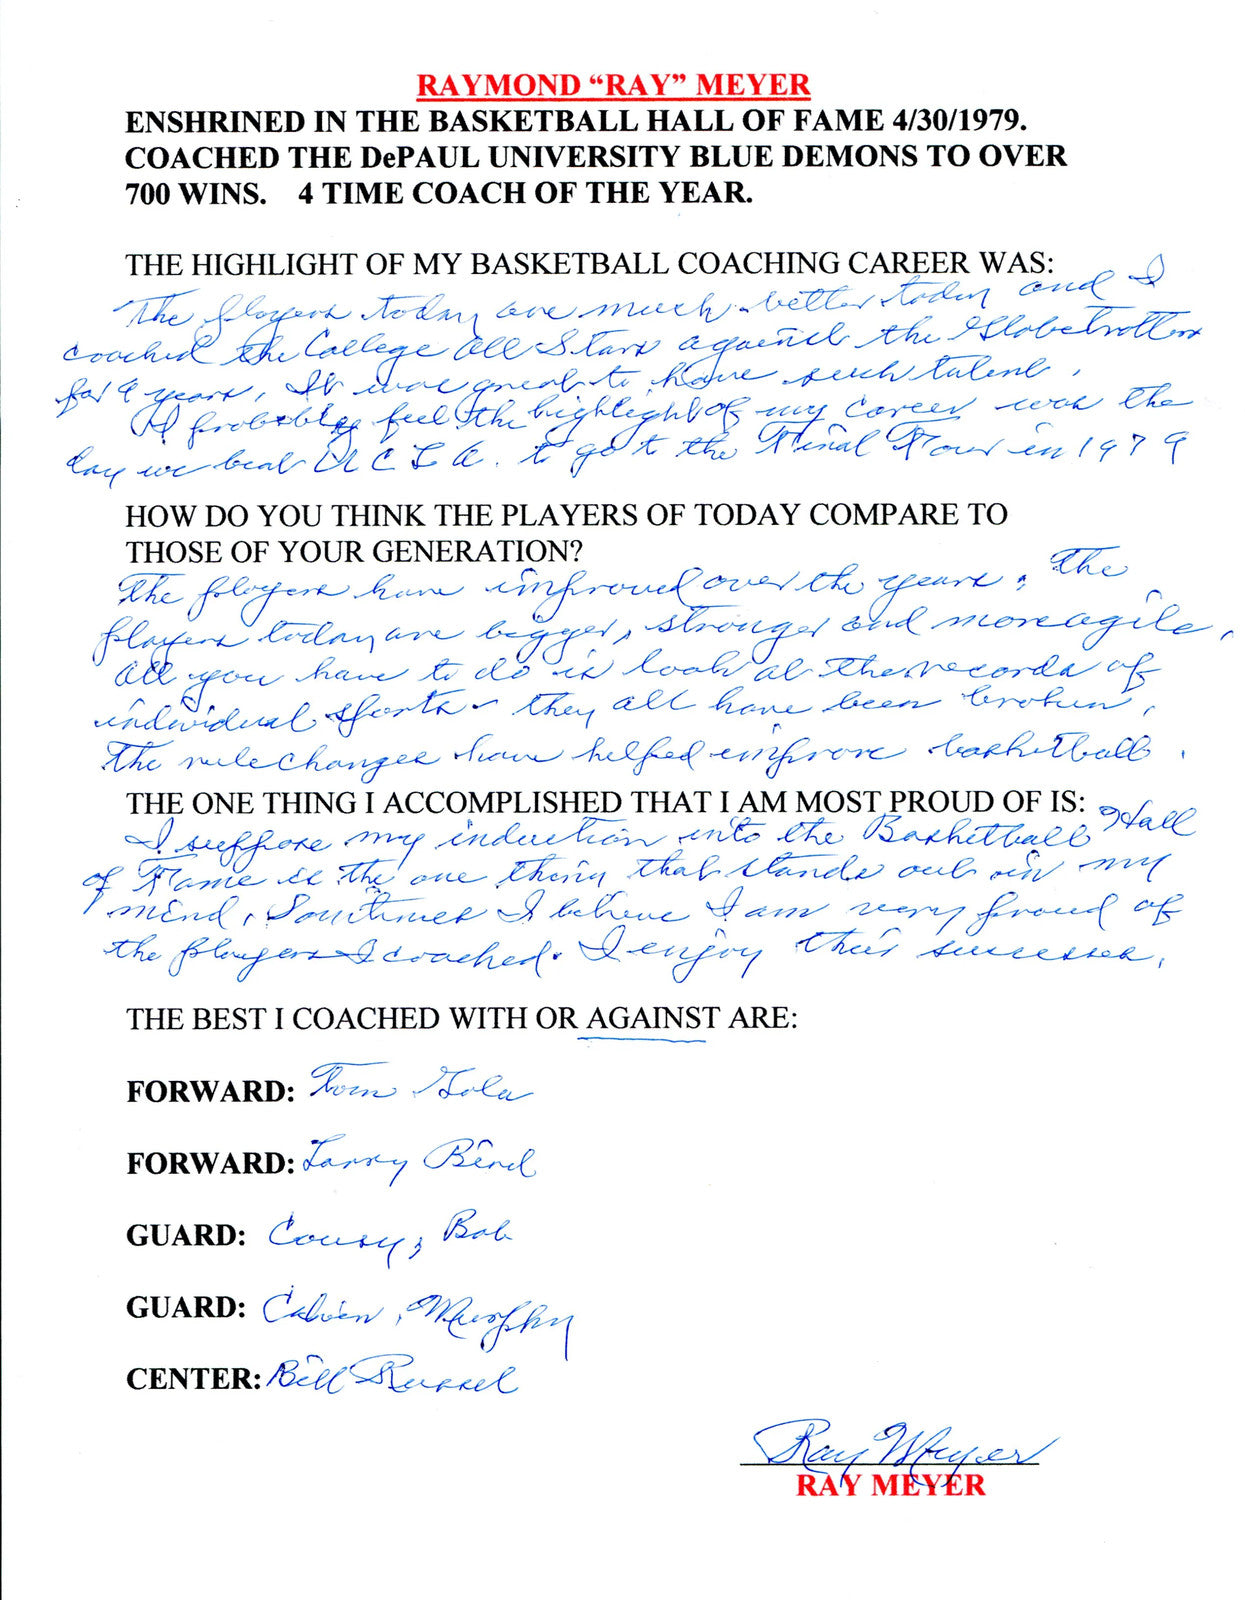 RAYMOND “RAY” MEYER
ENSHRINED IN THE BASKETBALL HALL OF FAME 4/30/1979.
COACHED THE DePAUL UNIVERSITY BLUE DEMONS TO OVER
700 WINS. 4 TIME COACH OF THE YEAR.
THE HIGHLIGHT OF MY BASKETBALL COACHING CAREER WAS:
The players today are much better today and I
coached the College All Stars against the Globetrotters
for 9 years. It was great to have such talent.
I probably feel the highlight of my career was the
day we beat U C L A. to go to the Final Four in 1979
HOW DO YOU THINK THE PLAYERS OF TODAY COMPARE TO
THOSE OF YOUR GENERATION?
The players have improved over the years. The
players today are bigger, stronger and more agile.
All you have to do is look at the records of
individual sports - they all have been broken.
The rule changes have helped improve basketball.
THE ONE THING I ACCOMPLISHED THAT I AM MOST PROUD OF IS:
I suppose my induction into the Basketball Hall
of Fame is the one thing that stands out in my
mind. Sometimes I believe I am very proud of
the players I coached. I enjoy their successes.
THE BEST I COACHED WITH OR AGAINST ARE:
FORWARD: Tom Gola
FORWARD: Larry Bird
GUARD: Cousy, Bob
GUARD: Calvin, Murphy
CENTER: Bill Russel
Ray Meyer
RAY MEYER